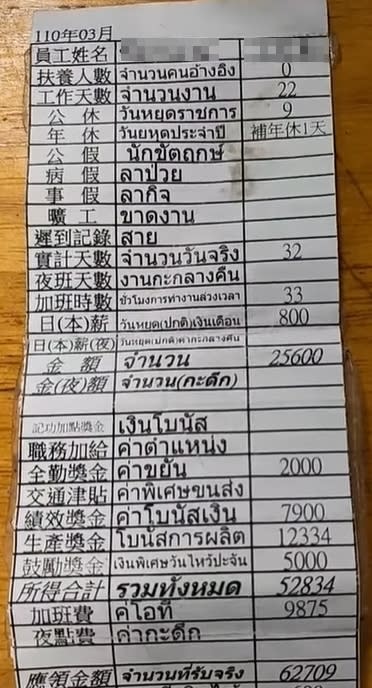 110年03月
員工姓名
扶養人數 จำนวนคนอ้างอิง 0
工作天數 จำนวนงาน 22
公休 วันหยุดราชการ 9
年休 วันยหุดประจำปี 補年休1天
公假 นักขัตฤกษ์
病假 ลาป่วย
事假 ลากิจ
曠工 ขาดงาน
遲到記錄 สาย
實計天數 จำนวนวันจริง 32
夜班天數 งานกะกลางคืน
加班時數 ชั่วโมงการทำงานล่วงเวลา 33
日(本)薪 วันหยุด(ปกติ)เงินเดือน 800
日(本)薪(夜) วันหยุด(ปกติ)ค่ากะกลางคืน
金額 จำนวน 25600
金(夜)額 จำนวน(กะดึก)
記功加點獎金 เงินโบนัส
職務加給 ค่าตำแหน่ง
全勤獎金 ค่าขยัน 2000
交通津貼 ค่าพิเศษขนส่ง
績效獎金 ค่าโบนัสเงิน 7900
生產獎金 โบนัสการผลิต 12334
鼓勵獎金 เงินพิเศษวันไหว้ปะจัน 5000
所得合計 รวมทั้งหมด 52834
加班費 ค่โอที 9875
夜點費 ค่ากะดึก
應領金額 จำนวนที่รับจริง 62709